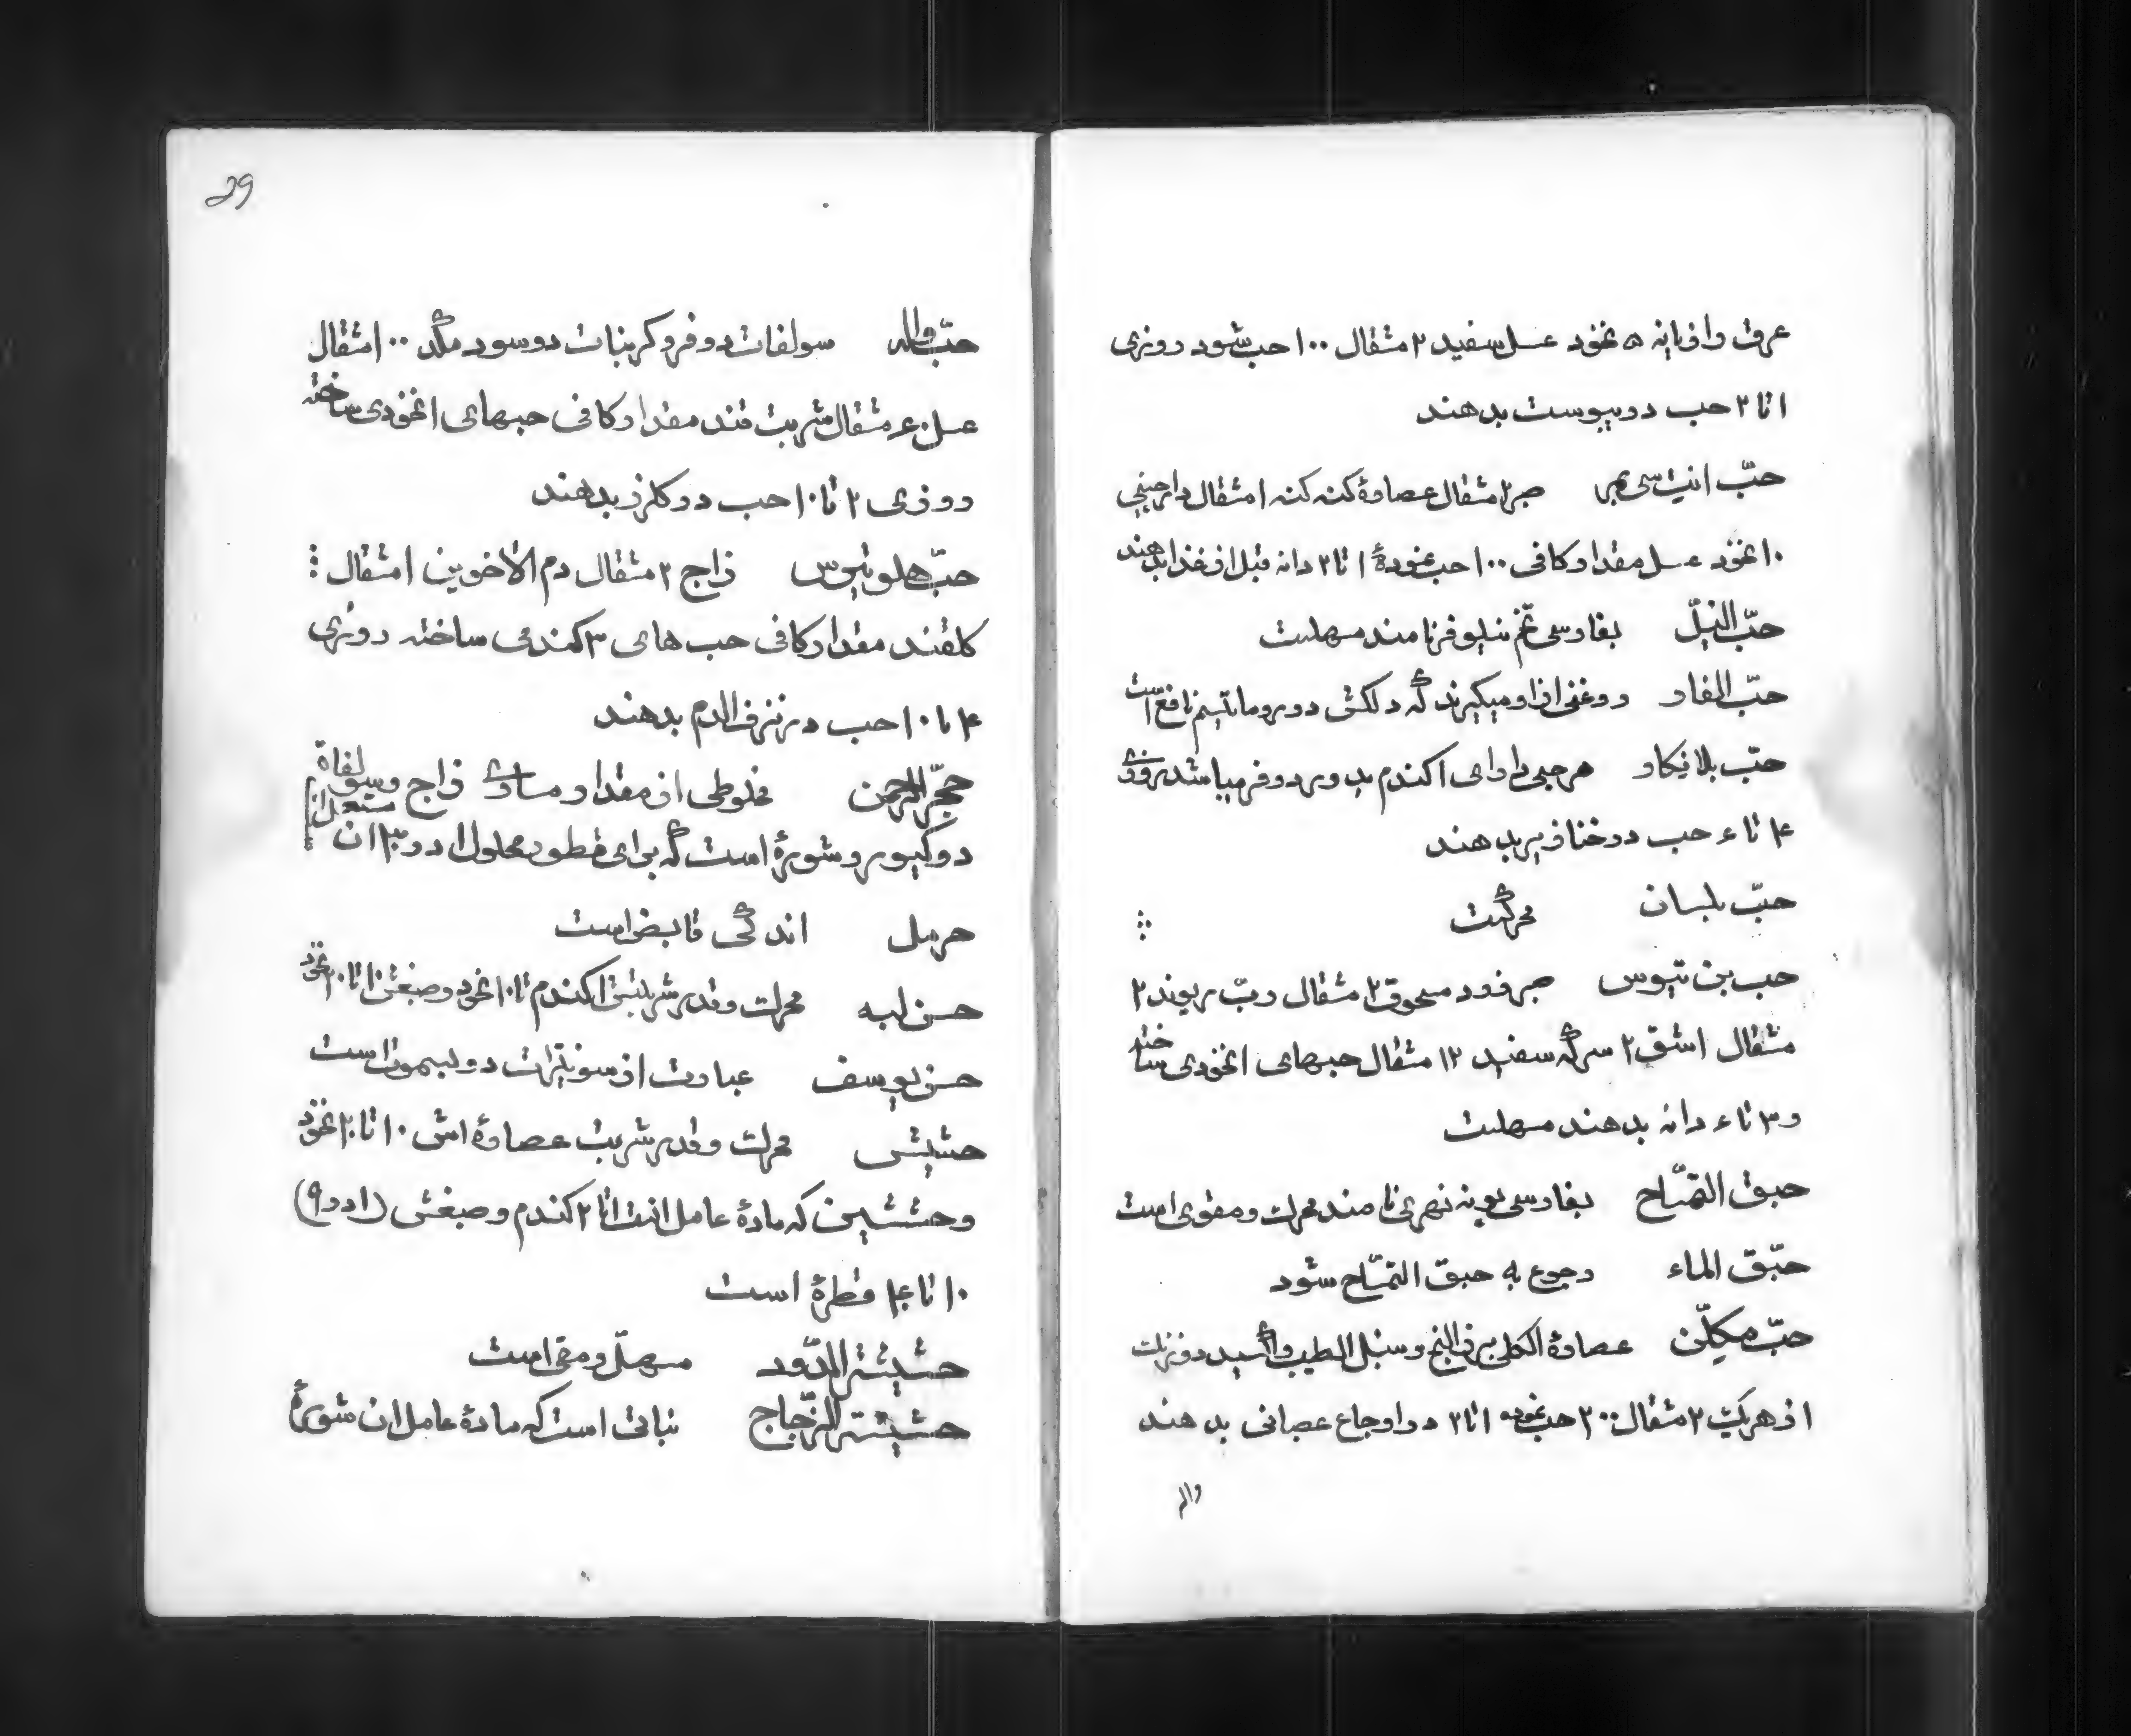 عرق رازیانه ۵ نخود عسل سفید ۲ مثقال ۱۰۰ حب شود روزی
۱ تا ۲ حب در یبوست بدهند
حبّ انیت سی بر صبر ۲ مثقال عصارهٔ کنه کنه ۱ مثقال دارچینی
۱۰ نخود عسل مقدار کافی ۱۰۰ حب نمودهٔ ۱ تا ۲ دانه قبل از غذا بدهند
حبّ النیل بفارسی تخم نیلوفر نامند مسهلست
حبّ الغار روغنی از او میگیرند که دلکش در روماتیسم نافع است
حبّ بلانکار هر حبی دارای ۱ کندم یدور دوفر میباشد روزی
۴ تا ۶ حب در خنازیر بدهند
حبّ بلسان محرکست
حب بن تیوس صبر زرد مسحوق ۲ مثقال ربّ ریوند ۲
مثقال اشق ۲ سرکه سفید ۱۲ مثقال حبهای ۱ نخودی ساخته
و ۳ تا ۶ دانه بدهند مسهلست
حبق التمّاح بفارسی پونه نهری نامند محرک و مقوی است
حبّق الماء رجوع به حبق التمّاح شود
حبّ مکلّن عصارهٔ الکلی بزر البنج و سنبل الطیب و اکسید دوزنک
از هر یک ۲ مثقال ۲۰۰ حب نموده ۱ تا ۲ در اوجاع عصبانی بدهند
29
حبّ واله سولفات دوفر و کربنات دو سود مکد ۱۰۰ مثقال
عسل ۶۰ مثقال شربت قند مقدار کافی حبهای ۱ نخودی ساخته
روزی ۲ تا ۱۰ حب در کلرز بدهند
حبّ هلوتیوس زاج ۲ مثقال دم الاخوین ۱ مثقال
کلقند مقدار کافی حب های ۳ کندمی ساخته روزی
۴ تا ۱۰ حب در نزف الدم بدهند
حجر الرحمن مخلوطی از مقدار مساوی زاج و سولفاة
دوکیور و شورهٔ است که برای قطور محلول ۱ در ۳۰۰ ان مستعمل است
حرمل اندکی قابض است
حسن لبه محرک و قدر شربتش ۱ کندم تا ۱۰ نخود و صبغش ۱۰ تا ۲۰ نخود
حسن یوسف عبارت از سونیترات دو بیسموت است
حشیش محرک و قدر شربت عصارهٔ اش ۱۰ تا ۲۰ نخود
و حششین که مادهٔ عامل انست ۱ تا ۲ کندم و صبغش (۱ در ۹)
۱۰ تا ۴۰ قطرهٔ است
حشیشة الدّود مسهّل و مقی است
حشیشة الزّجاج نباتی است که مادهٔ عامل ان شورهٔ